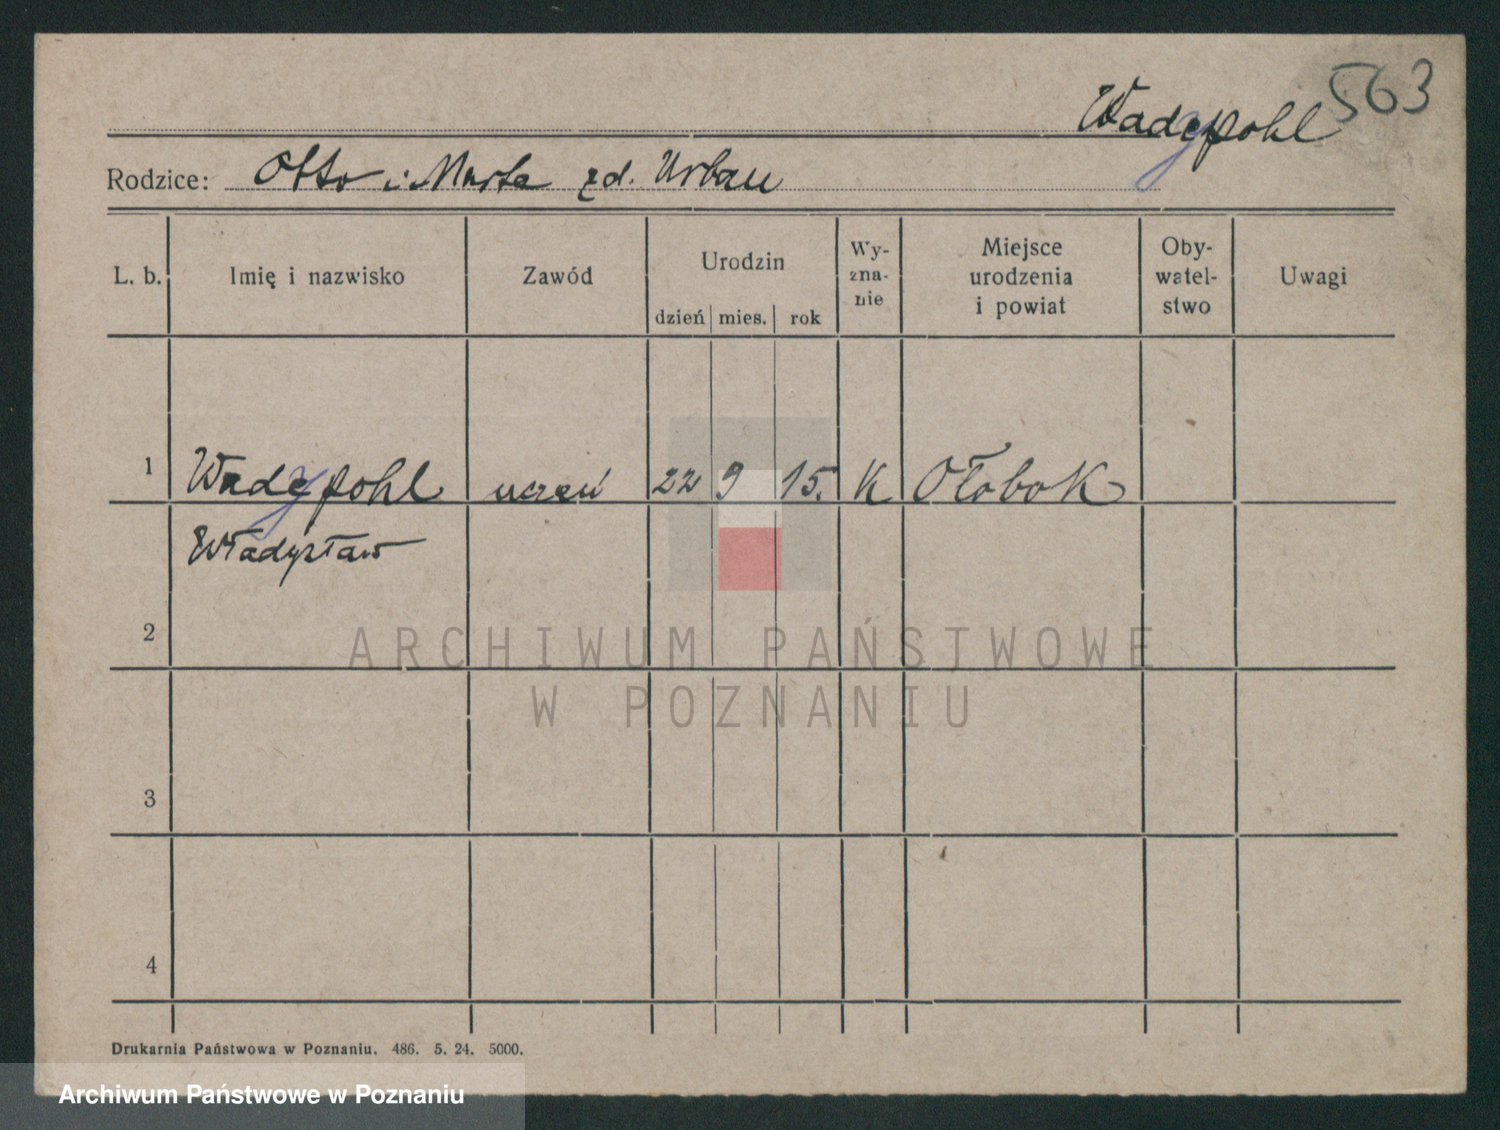 563
Wadepohl
Rodzice: Otto i Marta zd. Urban
L. b. Imię i nazwisko Zawód Urodzin dzień mies. rok Wy-zna-nie Miejsce urodzenia i powiat Oby-watel-stwo Uwagi
1 Wadepohl uczeń 22 9 15. K Ołobok
Władysław
2
ARCHIWUM PAŃSTWOWE
W POZNANIU
3
4
Drukarnia Państwowa w Poznaniu. 486. 5. 24. 5000.
Archiwum Państwowe w Poznaniu